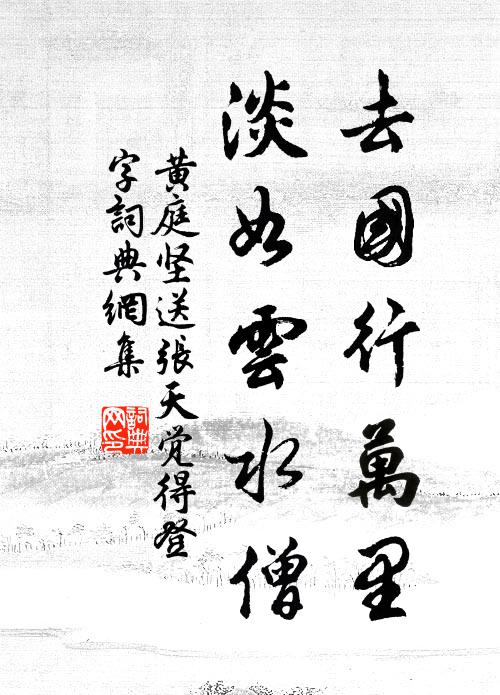 去國行萬里
淡如雲水僧
黄庭坚送張天觉得登
字詞典網集
詞典网印